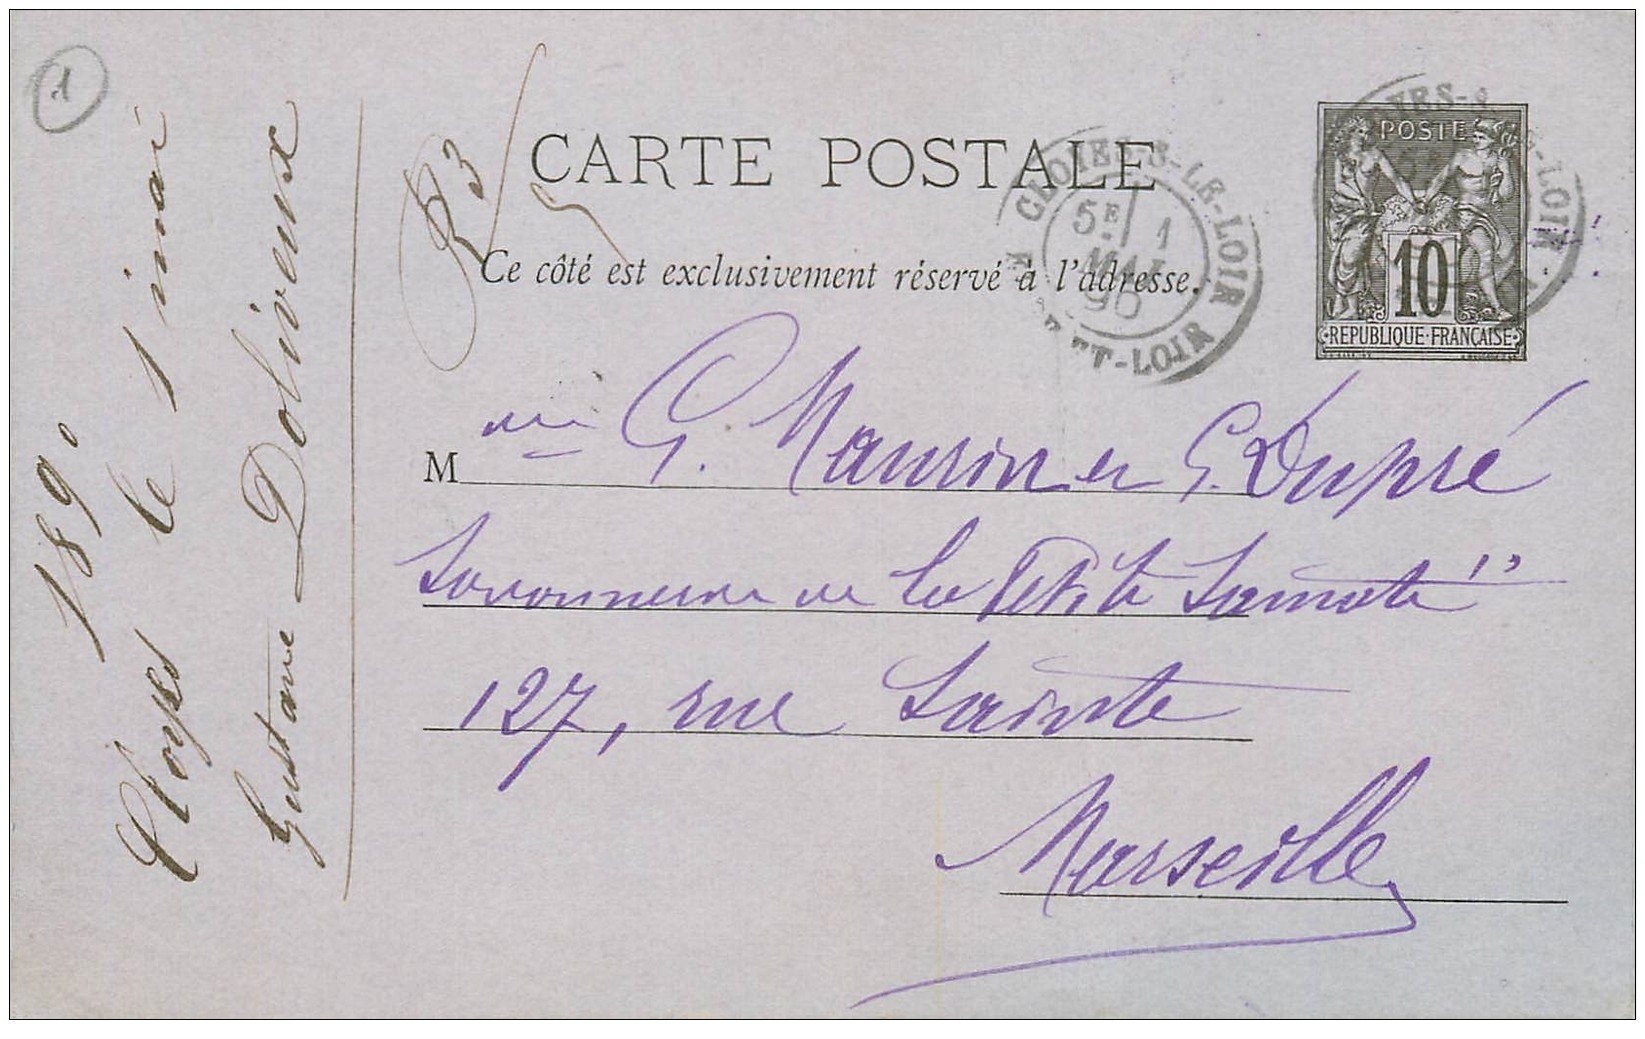 1
1890
Cloyes le 1 mai
Gustave Doliveux
R3
CARTE POSTALE
Ce côté est exclusivement réservé à l'adresse.
CLOYES-S-LE-LOIR
5E 1
MAI
90
ET-LOIR
POSTE
10
RÉPUBLIQUE FRANÇAISE
M G. Maurin et G. Dupré
Savonnerie de la Petite Sainote"
127, rue Sainte
Marseille